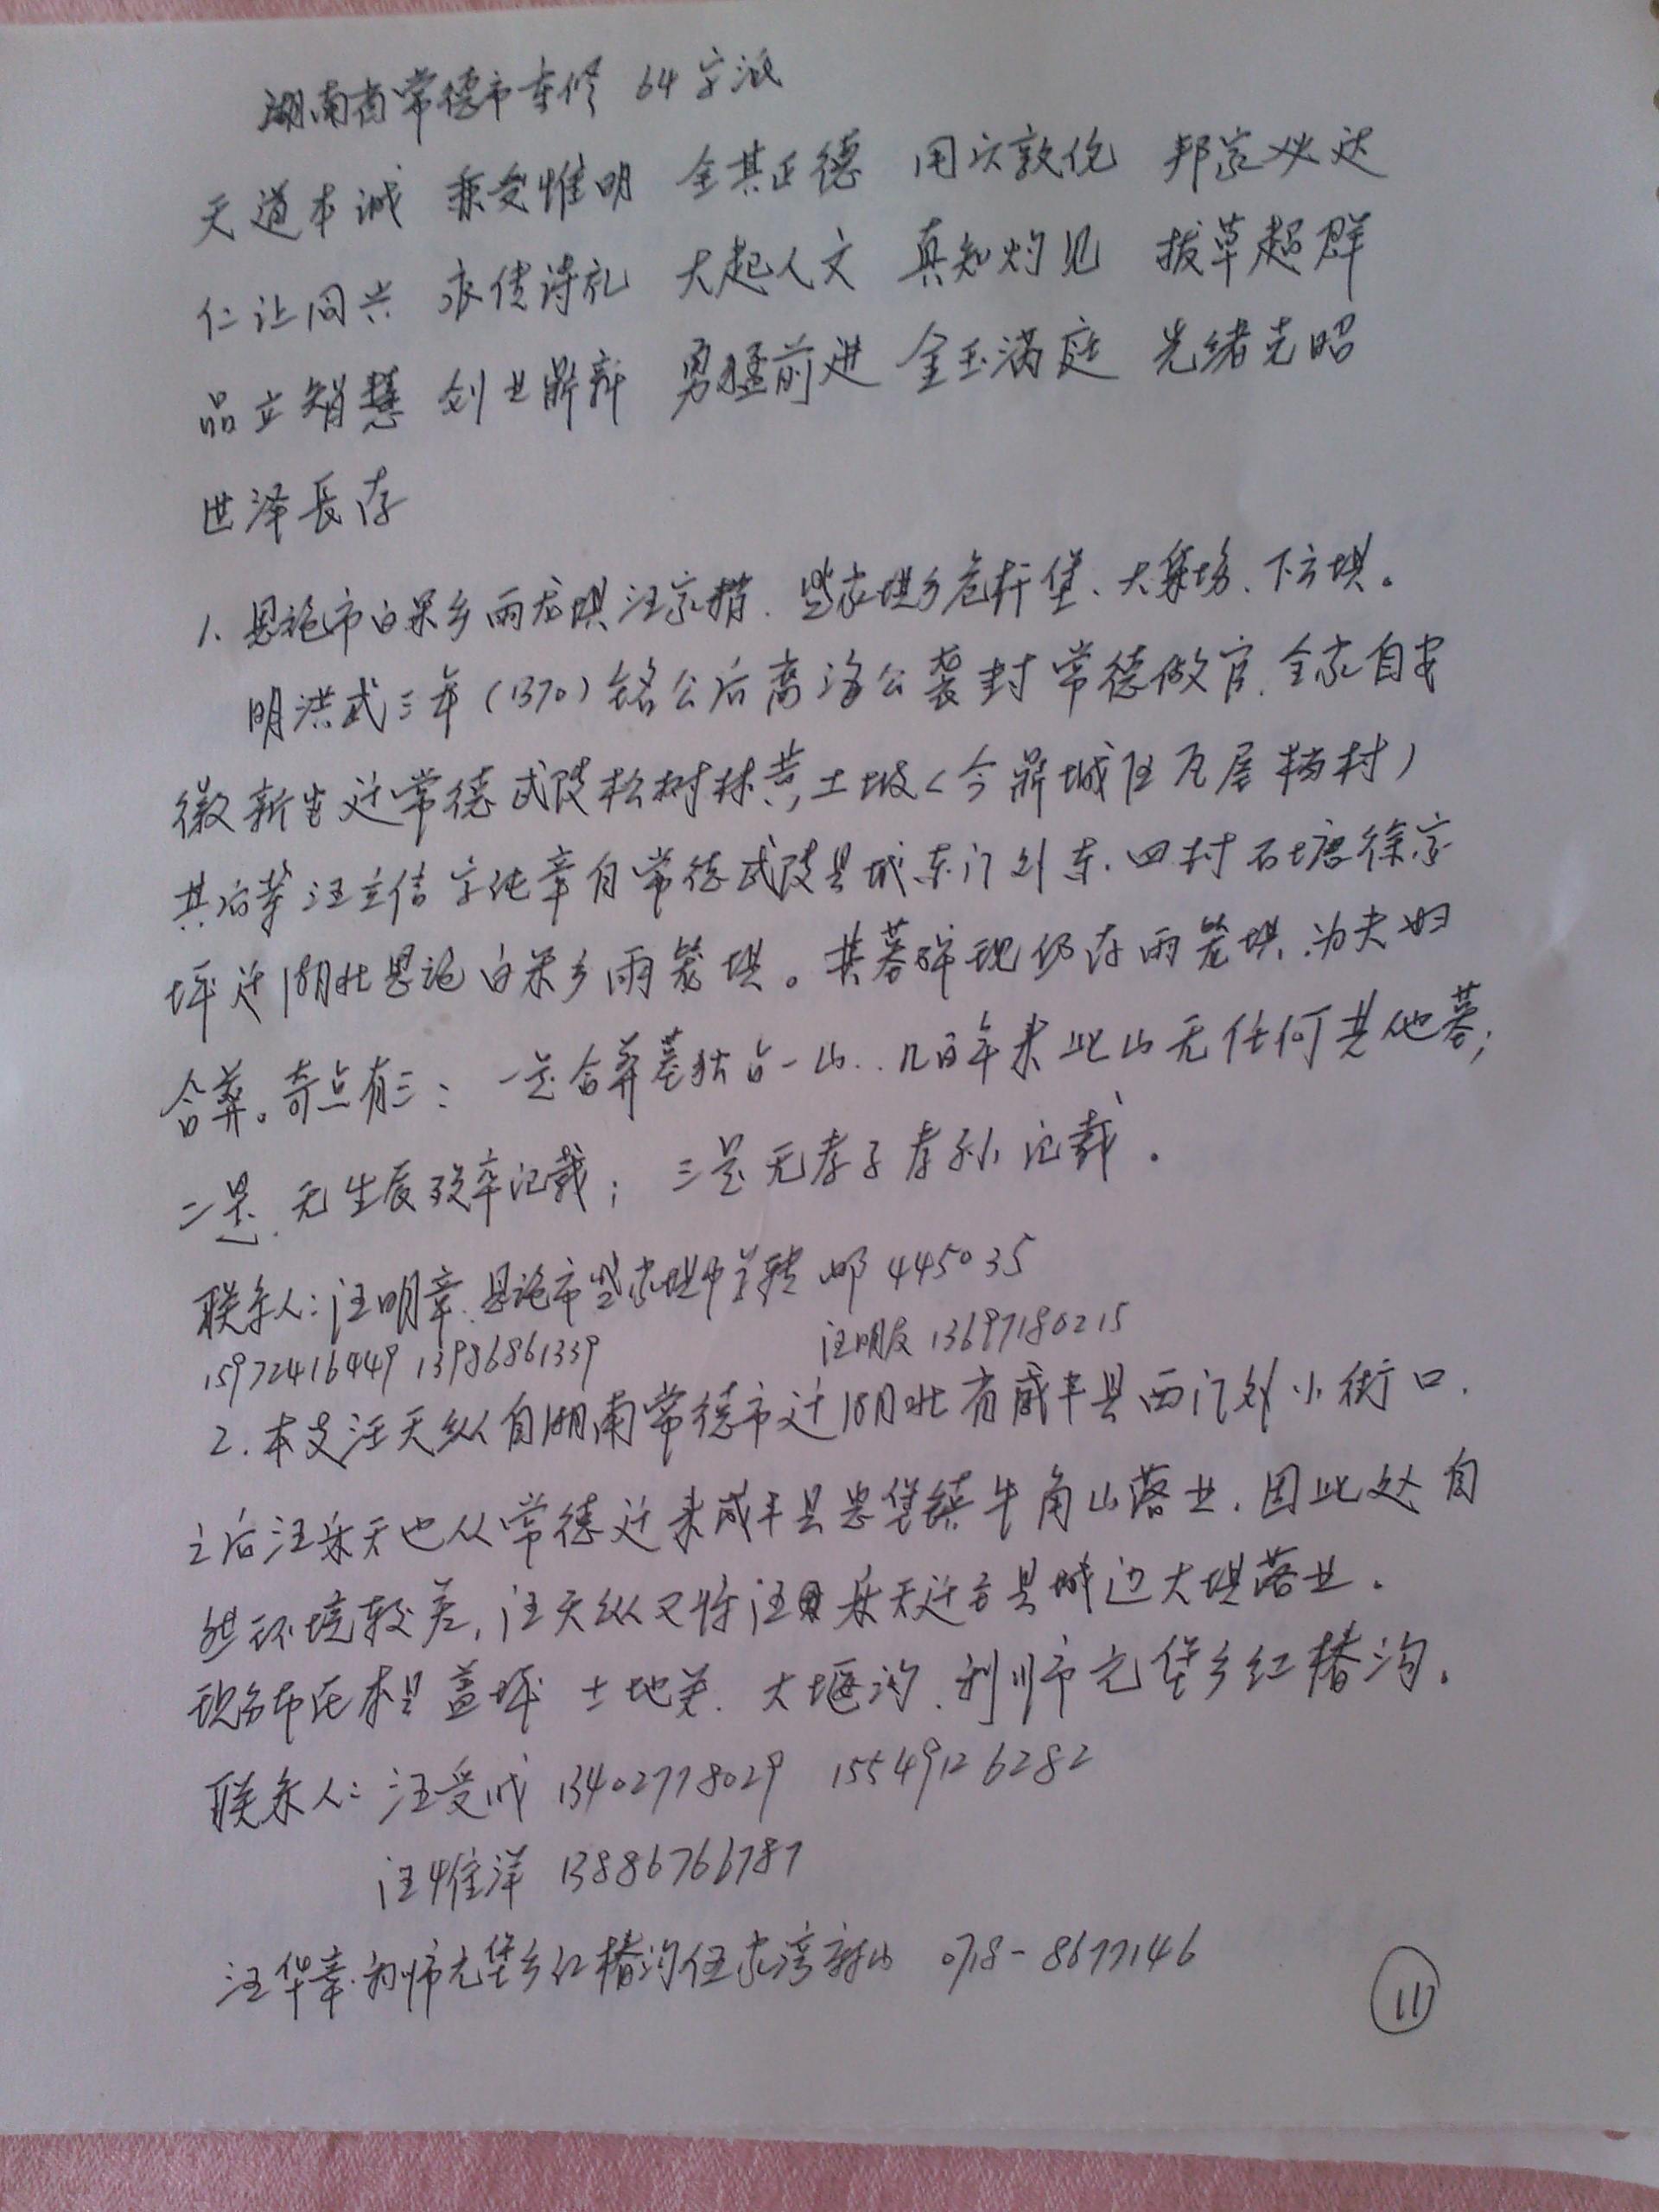 湖南省常德市车修 64字派
天道本诚 秉受惟明 全其正德 用六敦伦 邦家必达
仁让同兴 永传诗礼 大起人文 真知灼见 拔草超群
品立智慧 创业鼎新 勇猛前进 金玉满庭 先绪克昭
世泽長存
1、恩施市白果乡两龙坝汪家 、岜家坝乡危杆堡、大集场、下方坝。
明洪武三年(1370)铭公后裔海公袭封常德做官、全家自安
徽新安迁常德武陵松树林黄土坡(今鼎城区瓦屋档村)
其后 汪立信字纯章自常德武陵县城东门外东、四村石塘徐家
坪迁湖北恩施白果乡两笼坝。其墓碑现仍存两笼坝、为夫妇
合葬。奇点有三:一是合葬墓独占一山、几百年来此山无任何其他墓;
二是、无生辰殁卒记载;三是无孝子孝孙记载。
联系人:汪明章、恩施市岜家坝中学转 邮445035
15972416449 13986861339 汪明友 13697180215
2、本支汪天纵自湖南常德市迁湖北省咸丰县西门外小街口、
之后汪乐天也从常德迁来咸丰县忠堡镇牛角山落业、因此处自
然环境较差,汪天纵又将汪乐天迁至县城边大坝落业。
现分布在本县盖坪 土地关、大堰沟、利川市元堡乡红椿沟。
联系人:汪受成 13402778029 15549126282
汪惟洋 13886766787
汪华章、利川市元堡乡红椿沟伍家湾 0718-8677146
111